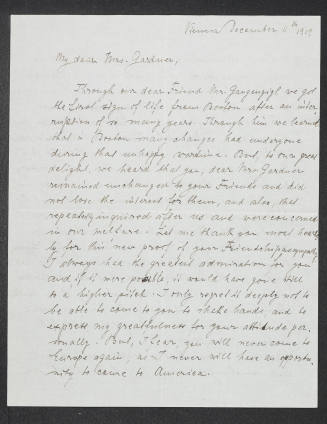 Vienna December 11th 1919
My dear Mrs. Gardner,
Through our dear Friend Mr. Gangengigl we got
the first sign of life from Boston after an inter
ruption of so many years. Through him we learned
that in Boston many changes had undergone
during that unhappy wartime. But, to our great
delight, we heard that you, dear Mrs. Gardner
remained unchanged to your Friends and did
not lose the interest for them, and also, that
repeatedly inquired after us and were concerned
in our welfare. Let me thank you most heart
ly for this new proof of your Friendship & sympathy.
I always had the greatest admiration for you
and, if it were possible, it would have gone still
to a higher pitch. I only regret it deeply not to
be able to come to you to shake hands, and to
express my greatfulness for your attitude per
sonally. But, I hear, you will never come to
Europe again, as I never will have an opportu
nity to come to America.